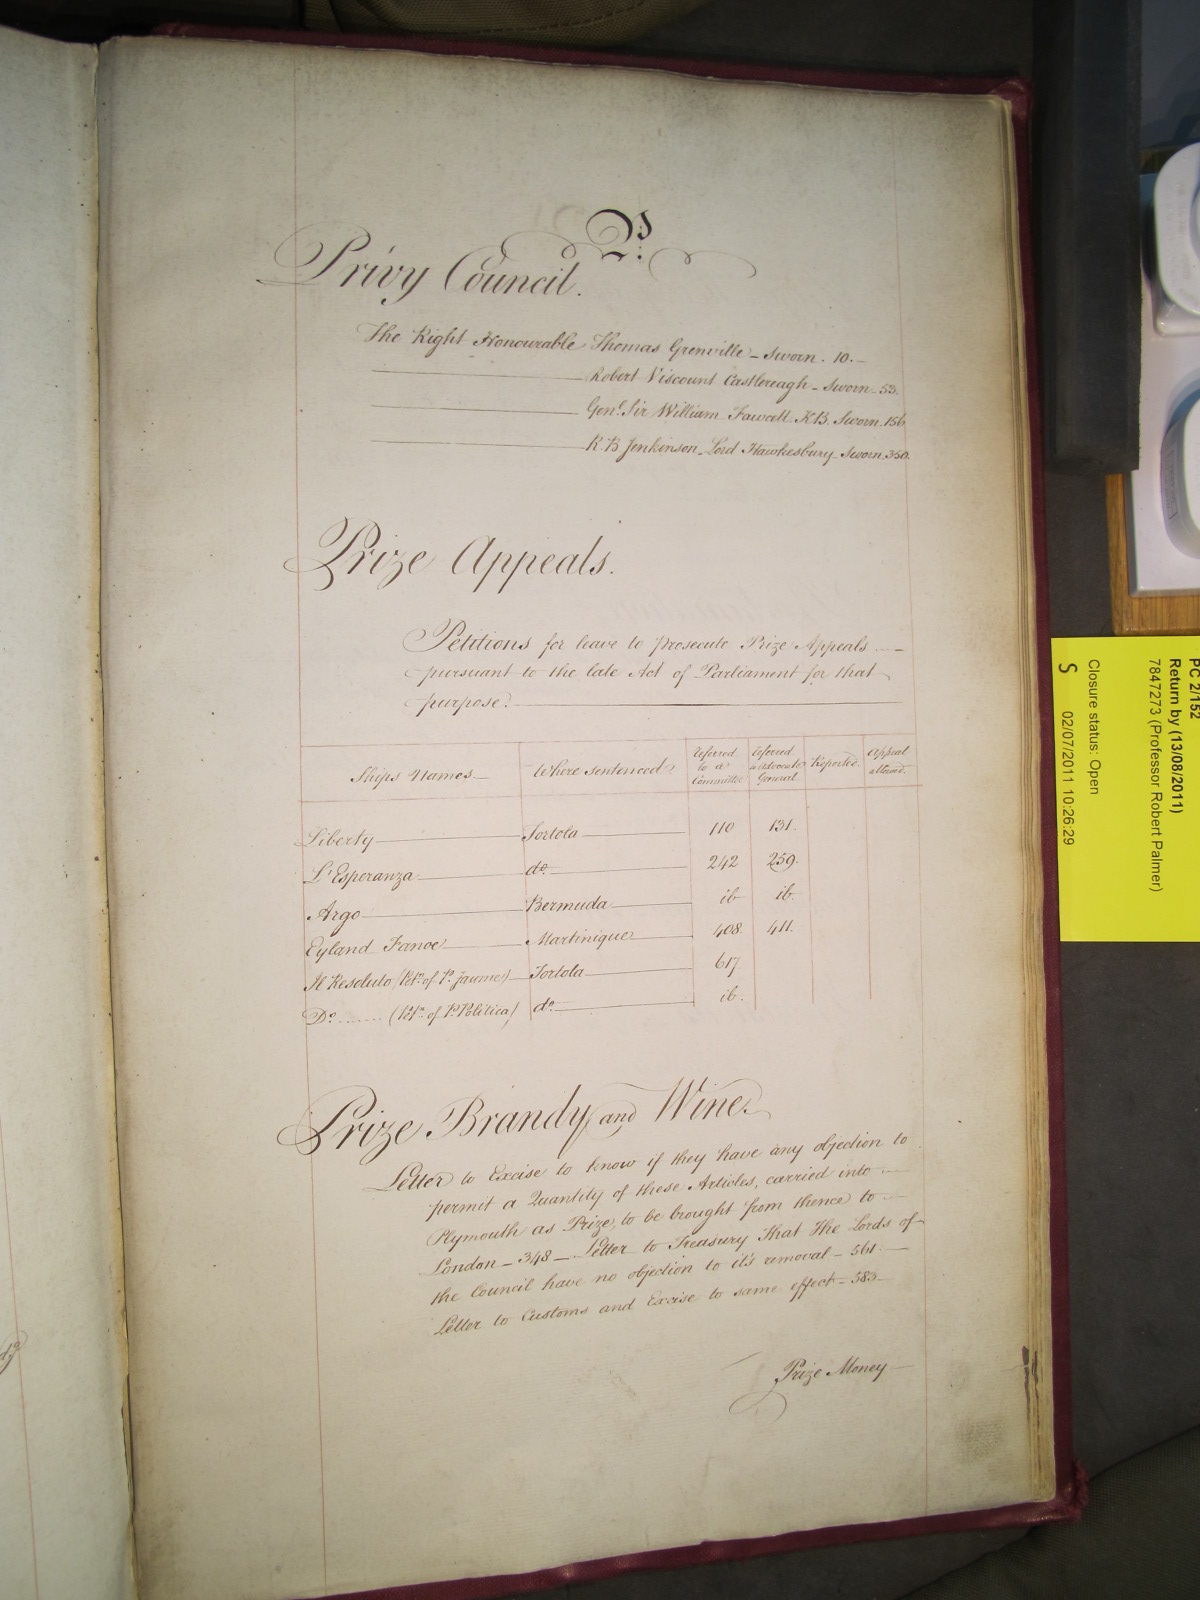 P:
Privy Council.
The Right Honourable Thomas Grenville - Sworn. 10.
Robert Viscount Castlereagh - Sworn. 53.
Genl. Sir William Fawcett K.B. Sworn. 156
R. B. Jenkinson Lord Hawkesbury Sworn. 350.
Prize Appeals.
Petitions for leave to prosecute Prize Appeals
pursuant to the late Act of Parliament for that
purpose.
Ships Names Where sentenced Referred to a Committee Referred to Advocate General Reported. Appeal allowed.
Liberty Tortola 110 131.
L'Esperanza do. 242 259.
Argo Bermuda ib ib.
Eyland Fanoe Martinique 408. 411.
Il Resoluto (Petn. of P. Jaume) Tortola 617
Do. (Petn. of P. Politica) do. ib.
Prize Brandy and Wine.
Letter to Excise to know if they have any objection to
permit a Quantity of these Articles, carried into
Plymouth as Prize, to be brought from thence to
London - 348 - Letter to Treasury that the Lords of
the Council have no objection to it's removal - 561.
Letter to Customs and Excise to same effect - 583.
Prize Money
PC 2/152
Return by (13/08/2011)
7847273 (Professor Robert Palmer)
Closure status: Open
S 02/07/2011 10:26:29